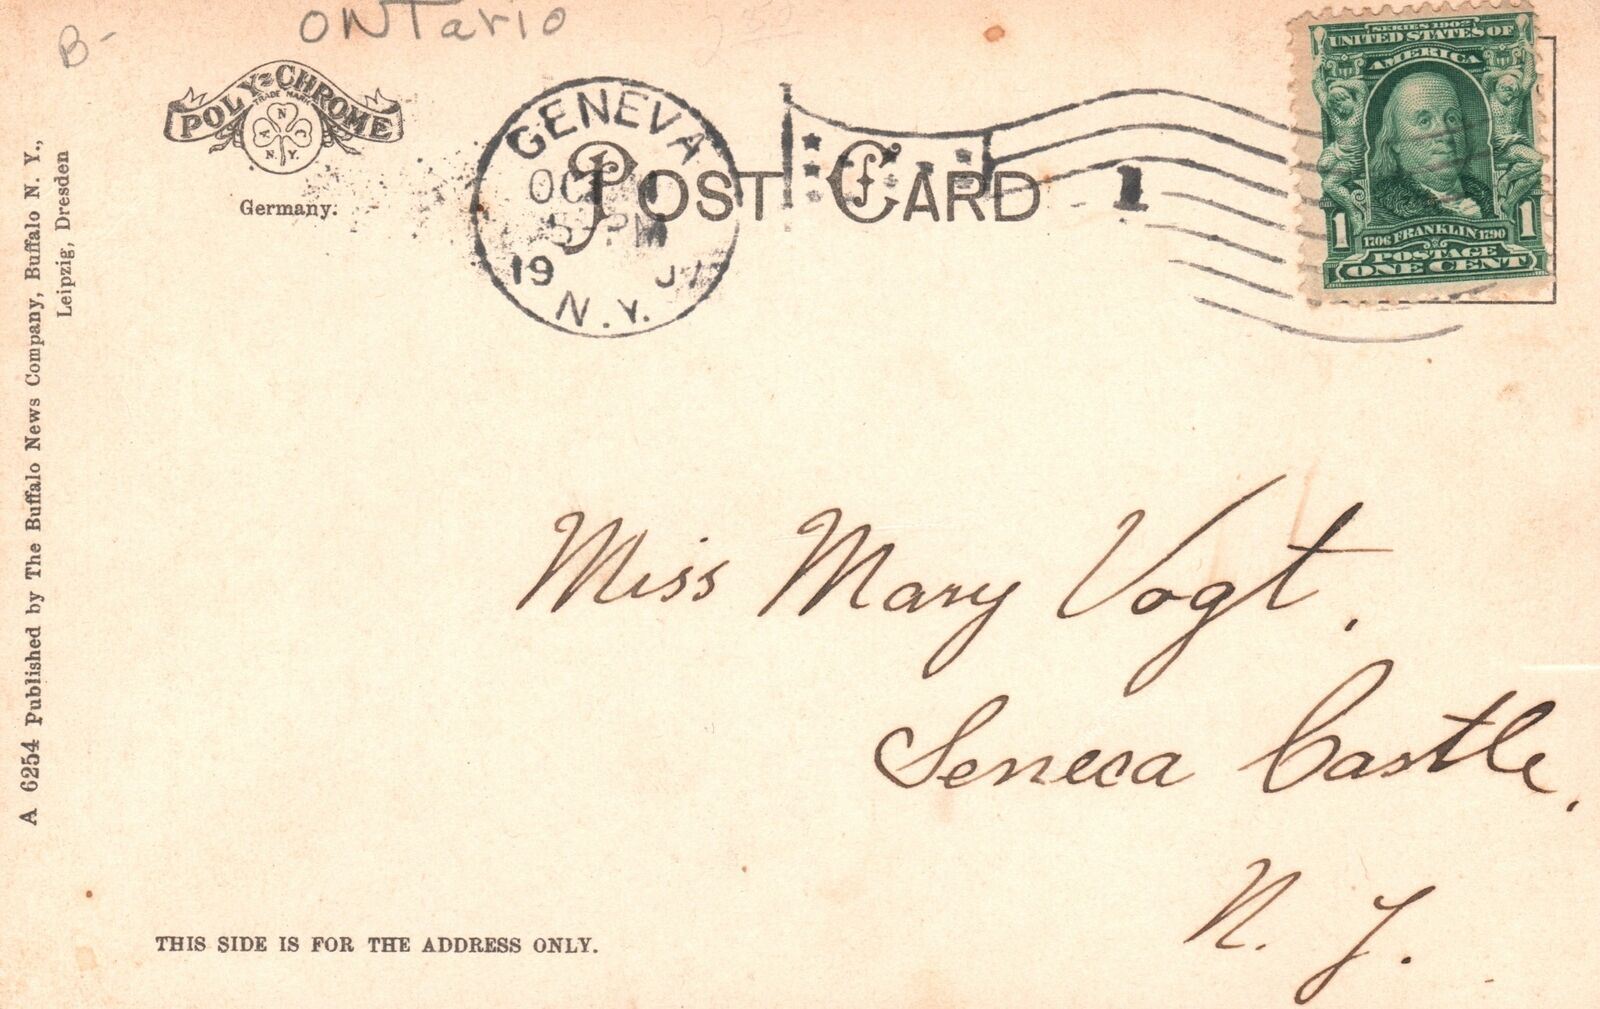 B-
ONTario
POLY-CHROME
TRADE MARK
A N C
N.Y.
Germany.
GENEVA
5 - PM
19 07
N.Y.
POST CARD
1
SERIES 1902
UNITED STATES OF
AMERICA
1 1
1706 FRANKLIN 1790
POSTAGE
ONE CENT
A 6254 Published by The Buffalo News Company, Buffalo N. Y.,
Leipzig, Dresden
Miss Mary Vogt.
Seneca Castle,
N. Y.
THIS SIDE IS FOR THE ADDRESS ONLY.